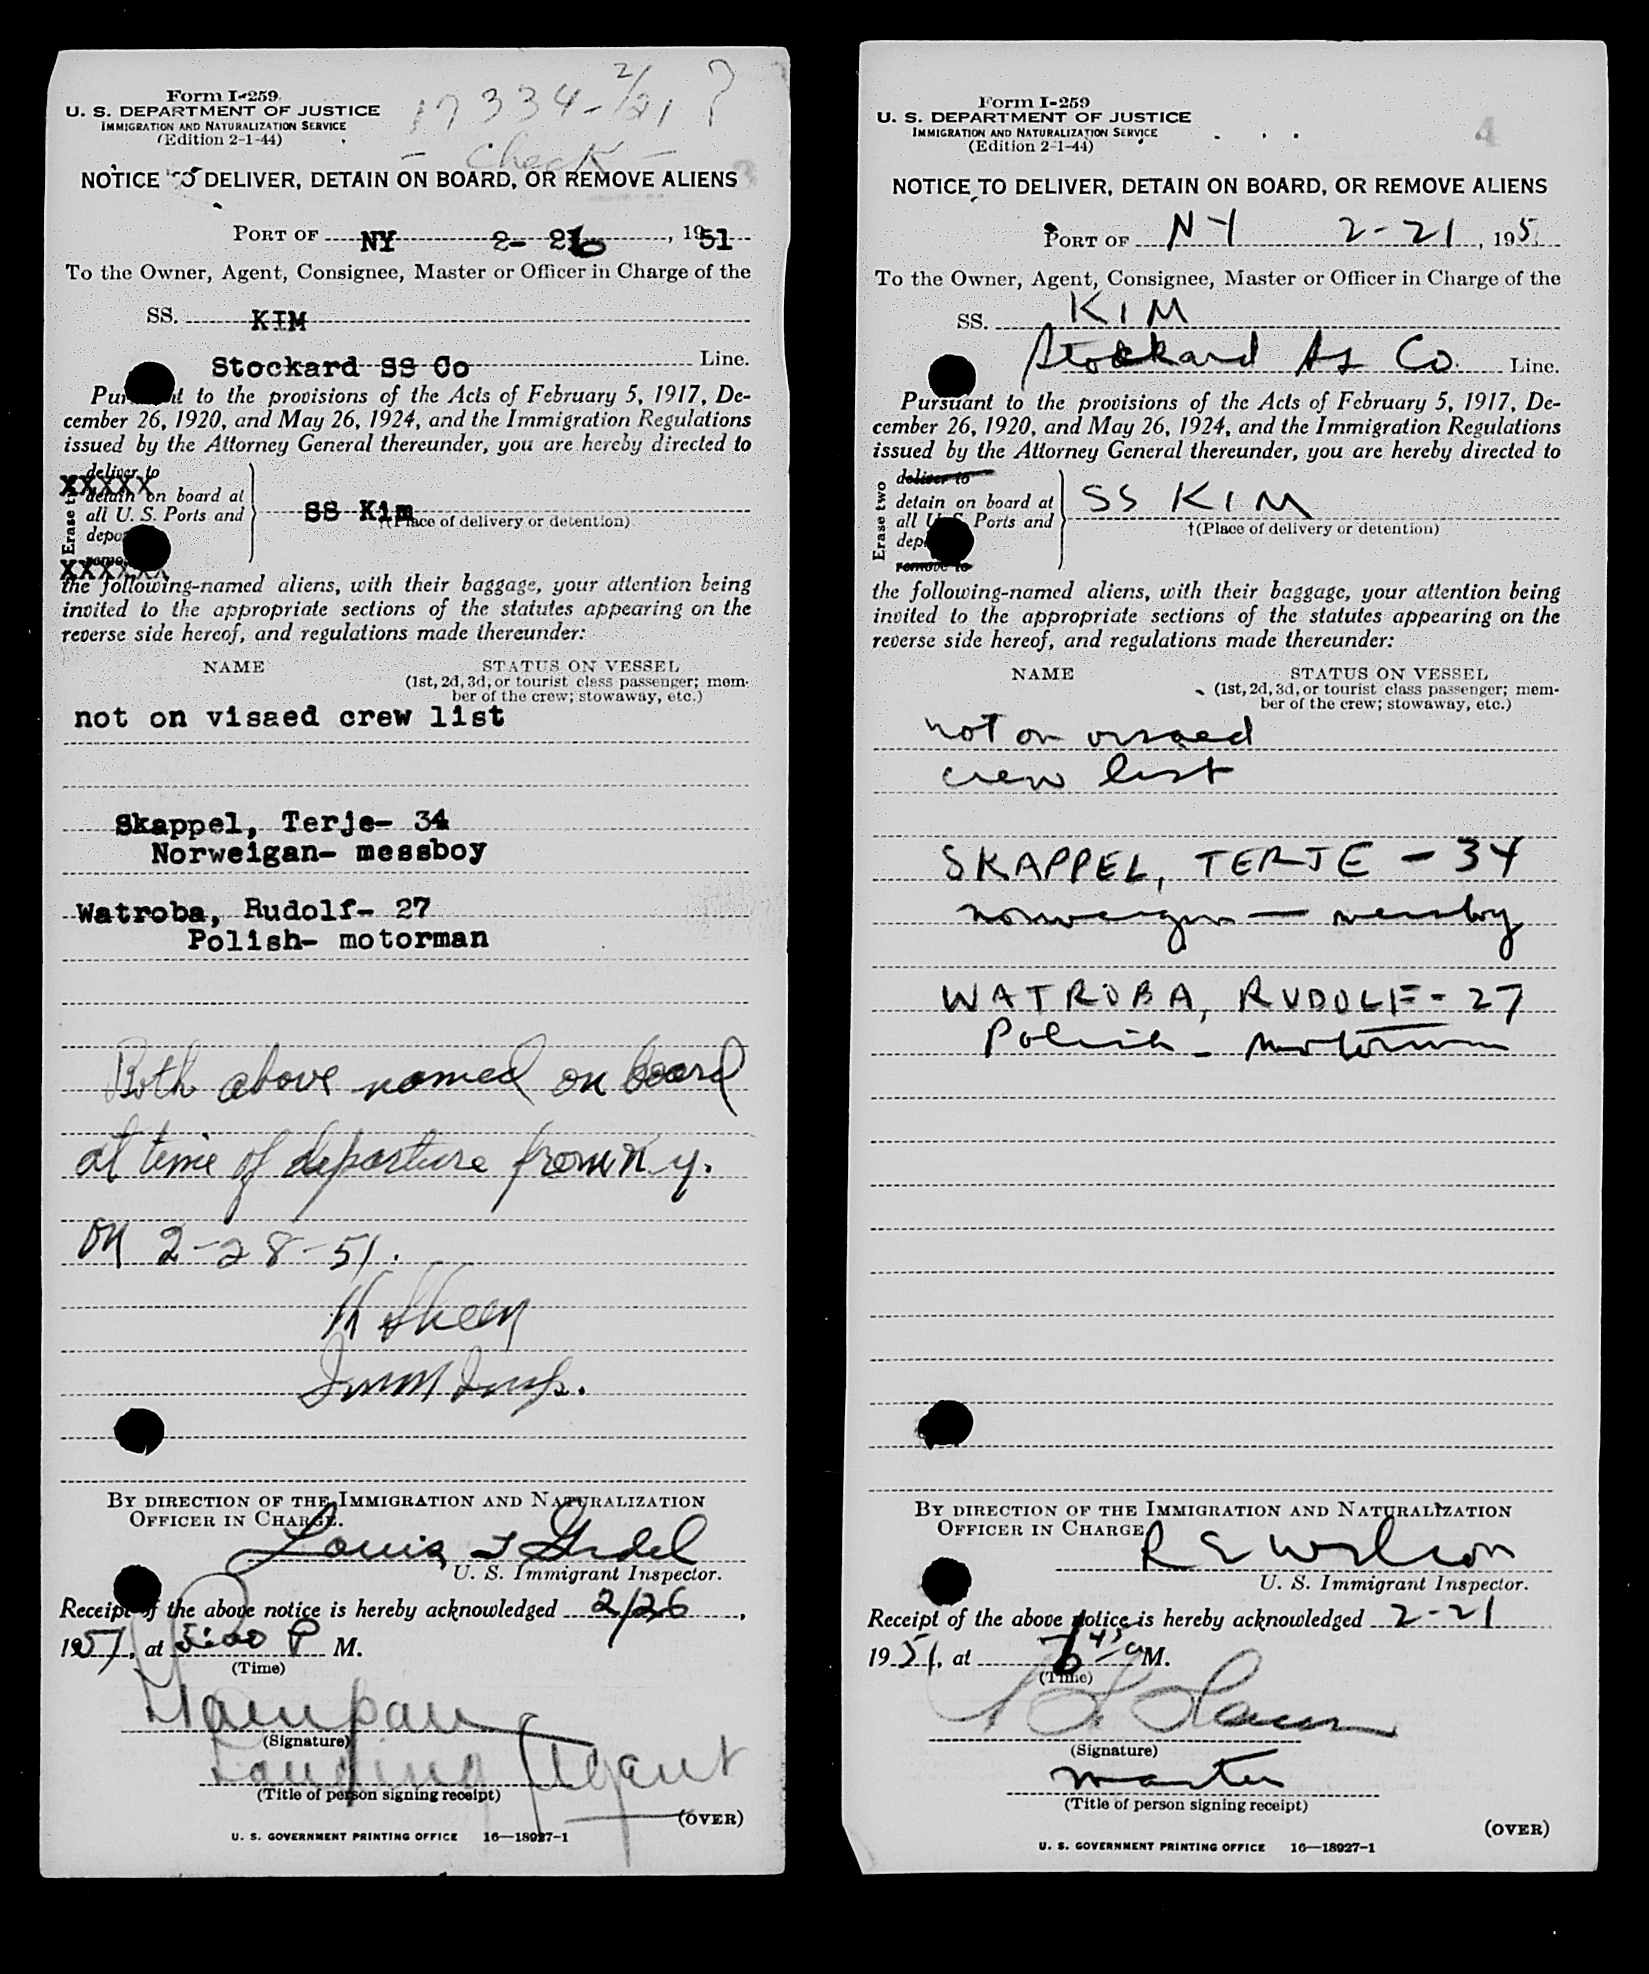 Form I-259
U. S. DEPARTMENT OF JUSTICE
IMMIGRATION AND NATURALIZATION SERVICE
(Edition 2-1-44)
17334-2/21 ?
- Check -
NOTICE TO DELIVER, DETAIN ON BOARD, OR REMOVE ALIENS
3
PORT OF NY 2- 26, 1951
To the Owner, Agent, Consignee, Master or Officer in Charge of the
SS. KIM
Stockard SS Co Line.
Pursuant to the provisions of the Acts of February 5, 1917, De-
cember 26, 1920, and May 26, 1924, and the Immigration Regulations
issued by the Attorney General thereunder, you are hereby directed to
Erase two
deliver to
XXXXX
detain on board at
all U. S. Ports and
SS Kim
†(Place of delivery or detention)
XXXXXX
the following-named aliens, with their baggage, your attention being
invited to the appropriate sections of the statutes appearing on the
reverse side hereof, and regulations made thereunder:
NAME STATUS ON VESSEL
(1st, 2d, 3d, or tourist class passenger; mem-
ber of the crew; stowaway, etc.)
not on visaed crew list
Skappel, Terje- 34
Norweigan- messboy
Watroba, Rudolf- 27
Polish- motorman
Both above named on board
at time of departure from N.Y.
on 2-28-51.
Imm Insp.
BY DIRECTION OF THE IMMIGRATION AND NATURALIZATION
OFFICER IN CHARGE.
Louis
U. S. Immigrant Inspector.
Receipt of the above notice is hereby acknowledged 2/26,
1951, at 5:00 P M.
(Time)
(Signature)
Landing Agent
(Title of person signing receipt)
(OVER)
U. S. GOVERNMENT PRINTING OFFICE 16—18927-1
Form I-259
U. S. DEPARTMENT OF JUSTICE
IMMIGRATION AND NATURALIZATION SERVICE
(Edition 2-1-44)
4
NOTICE TO DELIVER, DETAIN ON BOARD, OR REMOVE ALIENS
PORT OF NY 2-21, 195
To the Owner, Agent, Consignee, Master or Officer in Charge of the
SS. KIM
Stockard SS Co. Line.
Pursuant to the provisions of the Acts of February 5, 1917, De-
cember 26, 1920, and May 26, 1924, and the Immigration Regulations
issued by the Attorney General thereunder, you are hereby directed to
Erase two
deliver to
detain on board at
all U. S. Ports and
remove to
SS KIM
†(Place of delivery or detention)
the following-named aliens, with their baggage, your attention being
invited to the appropriate sections of the statutes appearing on the
reverse side hereof, and regulations made thereunder:
NAME STATUS ON VESSEL
(1st, 2d, 3d, or tourist class passenger; mem-
ber of the crew; stowaway, etc.)
not on visaed
crew list
SKAPPEL, TERJE - 34
Norweigan — messboy
WATROBA, RUDOLF - 27
Polish - motorman
BY DIRECTION OF THE IMMIGRATION AND NATURALIZATION
OFFICER IN CHARGE
R E Wilson
U. S. Immigrant Inspector.
Receipt of the above notice is hereby acknowledged 2-21
1951, at M.
(Time)
(Signature)
Master
(Title of person signing receipt)
(OVER)
U. S. GOVERNMENT PRINTING OFFICE 16—18927-1